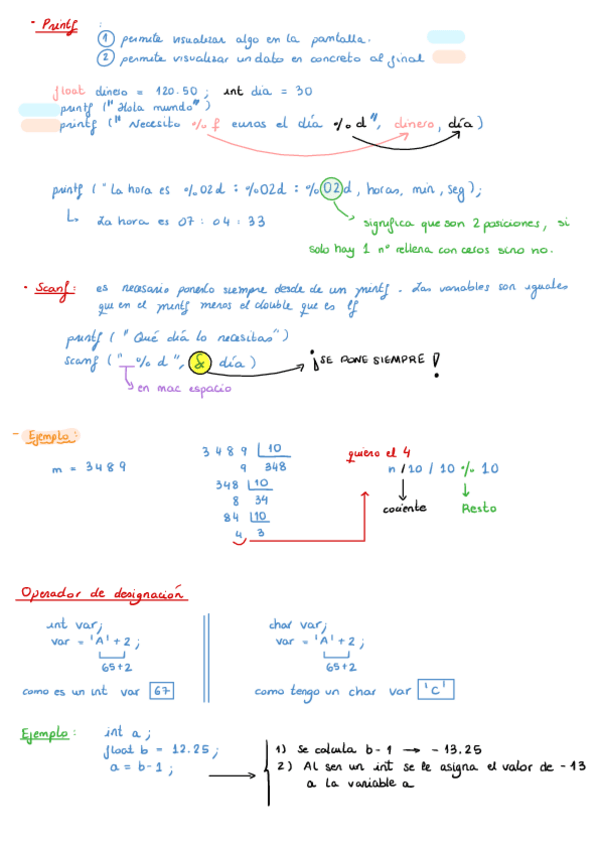 - Printf :
① permite visualizar algo en la pantalla.
② permite visualizar un dato en concreto al final
float dinero = 120.50 ; int dia = 30
printf ("Hola mundo")
printf (" Necesito % f euros el día % d ", dinero, día )
printf (" La hora es %02d : %02d : %02d , horas, min , seg);
↳ La hora es 07 : 04 : 33
significa que son 2 posiciones, si
solo hay 1 nº rellena con ceros sino no.
• Scanf : es necesario ponerlo siempre desde de un printf . Las variables son iguales
que en el printf menos el double que es lf
printf (" Qué día lo necesitas")
scanf (" _ % d ", & día ) ¡SE PONE SIEMPRE !
en mac espacio
- Ejemplo :
m = 3489
3 4 8 9 | 10
9 348
348 | 10
8 34
84 | 10
4 3
quiero el 4
n / 10 / 10 % 10
cociente Resto
Operador de designación
int var;
var = 'A' + 2 ;
65+2
como es un int var 67
char var;
var = 'A' + 2 ;
65+2
como tengo un char var 'C'
Ejemplo : int a ;
float b = 12.25 ;
a = b - 1 ;
1) Se calcula b - 1 → - 13.25
2) Al ser un int se le asigna el valor de - 13
a la variable a